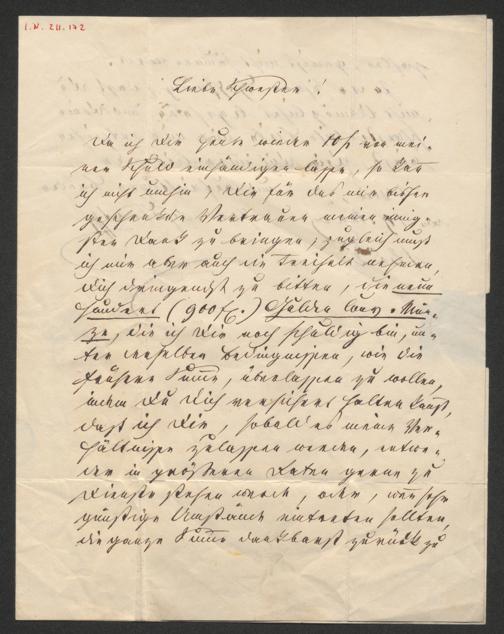 I.N. 211.172
Liebe Schwester!
Da ich Dir heute wieder 10 f. von mei-
ner Schuld einhändigen lasse, so kan
ich nicht umhin, Dir für das mir bisher
geschenkte Vertrauen meinen innig-
sten Dank zu bringen; zugleich muß
ich mir aber auch die Freiheit nehmen,
Dich dringendst zu bitten, die neun
hundert (900 f.) Gulden Conv. Mün-
ze, die ich Dir noch schuldig bin, un-
ter denselben Bedingnissen, wie die
frühere Summe, überlassen zu wollen,
indem Du Dich versichert halten kanst,
daß ich Dir, sobald es meine Ver-
hältnisse zulassen werden, entwe-
der in größeren Raten gerne zu
Diensten stehen werde, oder, wen sehr
günstige Umstände eintreten sollten,
die ganze Summe dankbarst zurück zu